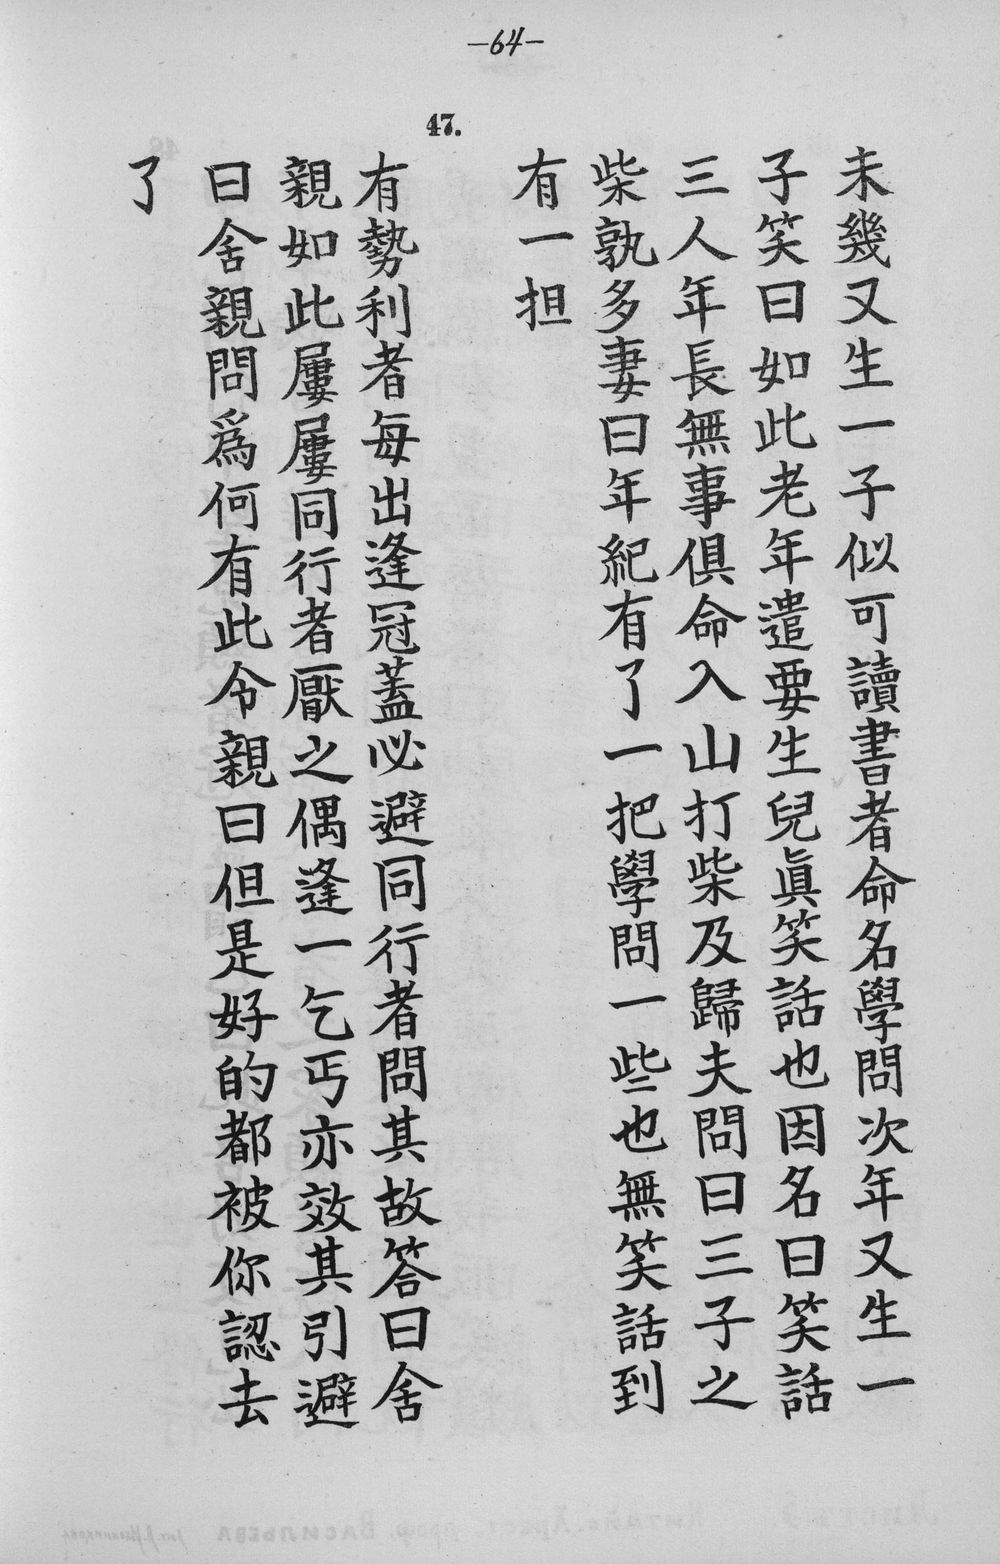 —64—
未幾又生一子似可讀書者命名學問次年又生一
子笑曰如此老年還要生兒眞笑話也因名曰笑話
三人年長無事俱命入山打柴及歸夫問曰三子之
柴孰多妻曰年紀有了一把學問一些也無笑話到
有一担
47.
有勢利者每出逢冠蓋必避同行者問其故答曰舍
親如此屢屢同行者厭之偶逢一乞丐亦效其引避
曰舍親問爲何有此令親曰但是好的都被你認去
了